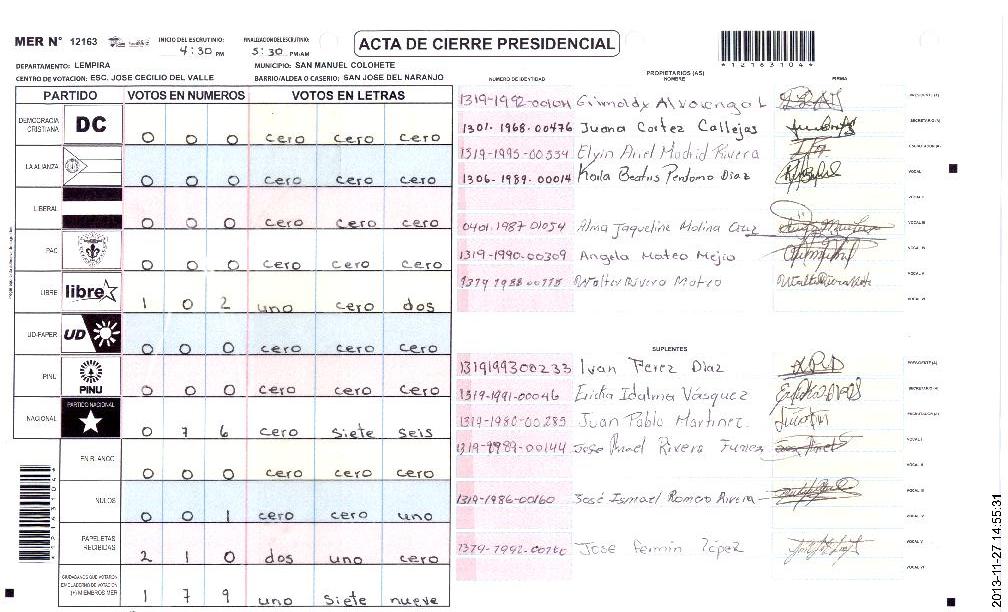 MER N° 12163
INICIO DEL ESCRUTINIO: 4:30 PM
FINALIZACION DEL ESCRUTINIO: 5:30 PM-AM
ACTA DE CIERRE PRESIDENCIAL
*12163104*
DEPARTAMENTO: LEMPIRA
MUNICIPIO: SAN MANUEL COLOHETE
CENTRO DE VOTACION: ESC. JOSE CECILIO DEL VALLE
BARRIO/ALDEA O CASERIO: SAN JOSE DEL NARANJO
PARTIDO VOTOS EN NUMEROS VOTOS EN LETRAS
DEMOCRACIA CRISTIANA DC 0 0 0 cero cero cero
LA ALIANZA 0 0 0 cero cero cero
LIBERAL 0 0 0 cero cero cero
PAC 0 0 0 cero cero cero
LIBRE libre 1 0 2 uno cero dos
UD-FAPER UD 0 0 0 cero cero cero
PINU PINU 0 0 0 cero cero cero
NACIONAL PARTIDO NACIONAL 0 7 6 cero siete seis
EN BLANCO 0 0 0 cero cero cero
NULOS 0 0 1 cero cero uno
PAPELETAS RECIBIDAS 2 1 0 dos uno cero
CIUDADANOS QUE VOTARON EN CUADERNO DE VOTACION (+) MIEMBROS MER 1 7 9 uno siete nueve
*12163104*
NUMERO DE IDENTIDAD
PROPIETARIOS (AS)
NOMBRE
FIRMA
Grimaldy Alvarenga L
PRESIDENTE (A)
1301-1968-00476 Juana Cortez Callejas
SECRETARIO (A)
1319-1995-00534 Elvin Ariel Madrid Rivera
ESCRUTADOR (A)
1306-1989-00014 Karla Beatris Perdomo Diaz
VOCAL I
0401-1987-01054 Alma Jaqueline Molina Cruz
VOCAL III
1319-1990-00309 Angela Mateo Mejia
VOCAL IV
Walter Rivera Mateo
VOCAL V
VOCAL VI
SUPLENTES
1319199300233 Ivan Perez Diaz
PRESIDENTE (A)
1319-1991-00046 Ericka Idalma Vásquez
SECRETARIO (A)
1319-1980-00285 Juan Pablo Martinez
ESCRUTADOR (A)
1319-1989-00144 Jose Anael Rivera Funez
VOCAL I
1319-1986-00160 José Ismael Romero Rivera
VOCAL III
Jose Fermin López
VOCAL V
VOCAL VI
2013-11-27 14:55:31